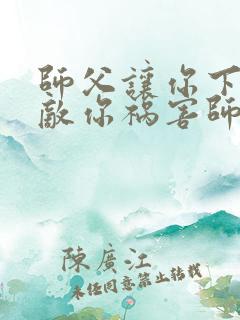 師父讓你下
敵你禍害師
陳廣江
未经同意禁止转载